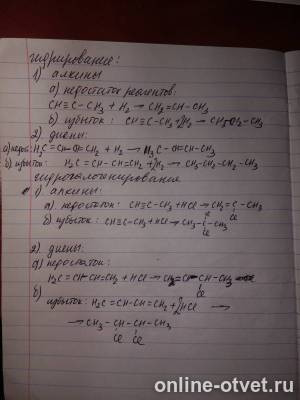 гидрирование:
1) алкины
а) недостаток реагентов:
CH≡C-CH₃ + H₂ → CH₂=CH-CH₃
б) избыток: CH≡C-CH₃ + 2H₂ → CH₃-CH₂-CH₃
2) диены:
а) недост: H₂C=CH-CH=CH₂ + H₂ → H₃C-CH=CH-CH₃
б) избыток: H₂C=CH-CH=CH₂ + 2H₂ → CH₃-CH₂-CH₂-CH₃
гидрогалогенирование
1) алкины:
а) недостаток: CH≡C-CH₃ + HCl → CH₂=C-CH₃
Cl
б) избыток: CH≡C-CH₃ + HCl → CH₃-C-CH₃
Cl
Cl
2) диены:
а) недостаток:
H₂C=CH-CH=CH₂ + HCl → CH₂=CH-CH-CH₃
Cl
б)
избыток: H₂C=CH-CH=CH₂ + 2HCl →
→ CH₃-CH-CH-CH₃
Cl Cl
online-otvet.ru